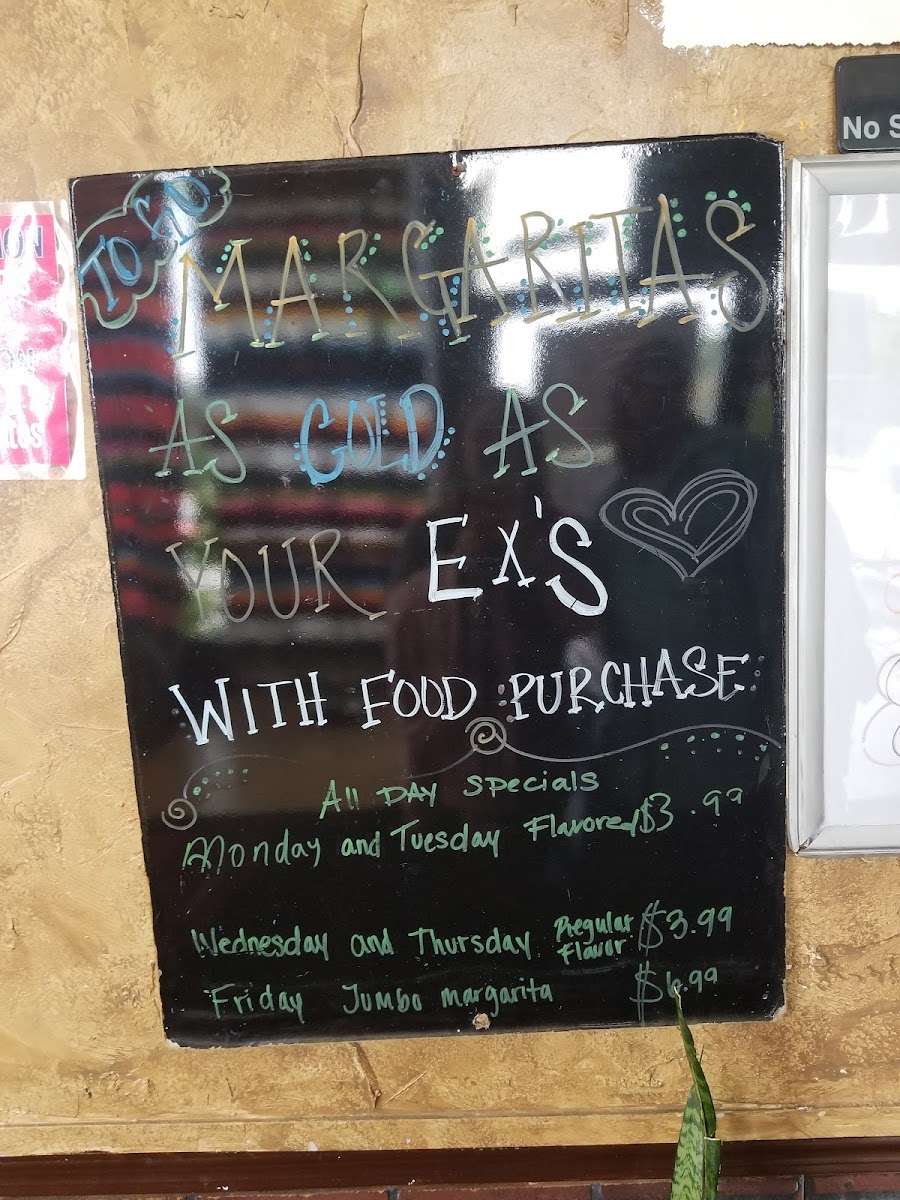 TO GO
MARGARITAS
AS COLD AS
YOUR EX'S
WITH FOOD PURCHASE
All DAY Specials
Monday and Tuesday Flavored $3.99
Wednesday and Thursday Regular Flavor $3.99
Friday Jumbo margarita $6.99
No S
ION